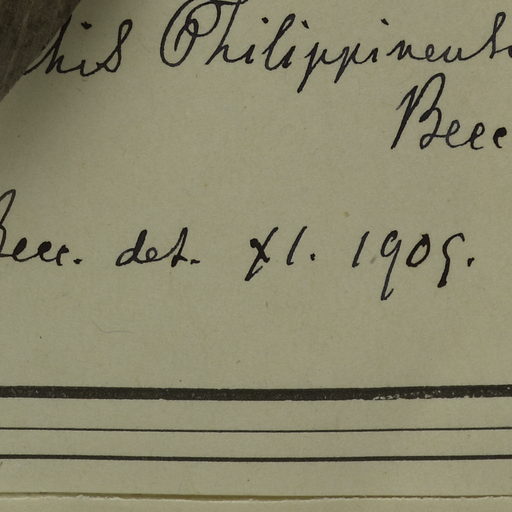 his Philippinens
Becc
Becc. det. XI. 1909.